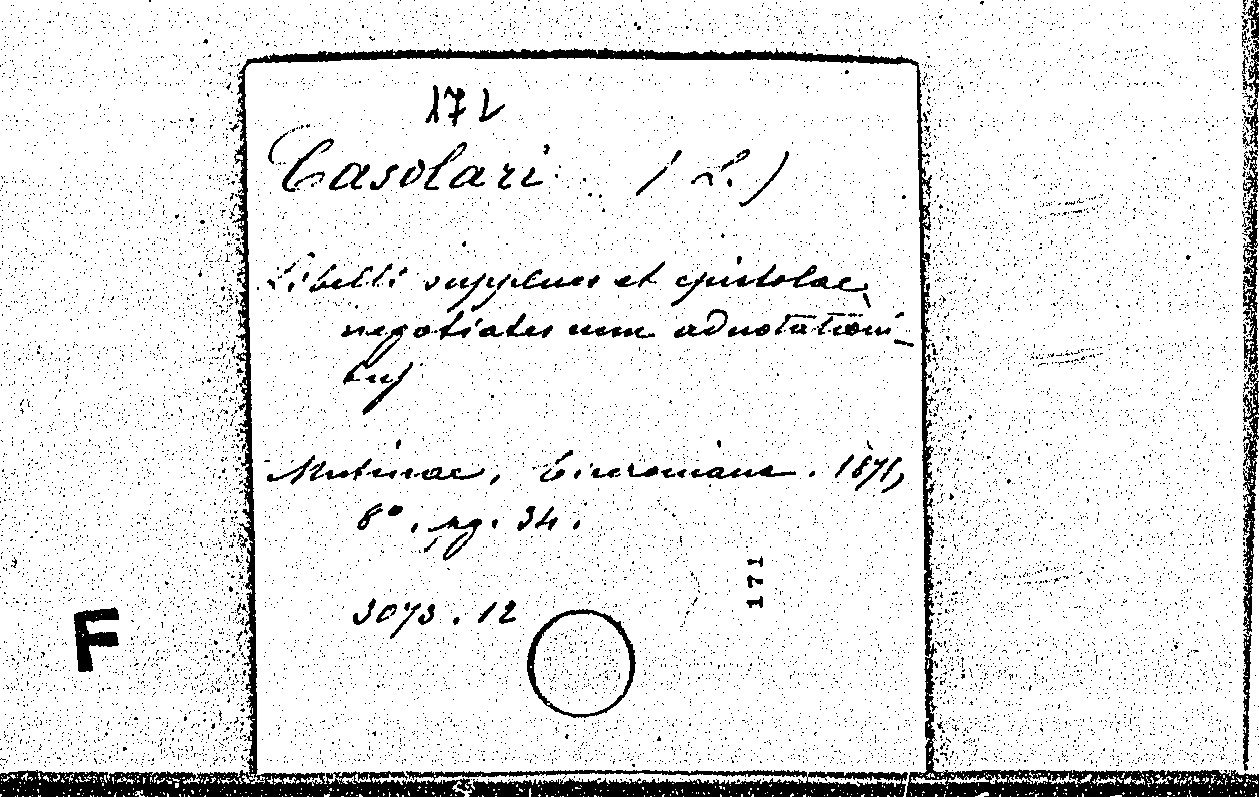 172
Casolari (L.)
Libelli supplices et epistolae
negotiales cum adnotationi-
bus
Mutinae, 1871,
8°. pg. 34.
171
3073.12
F